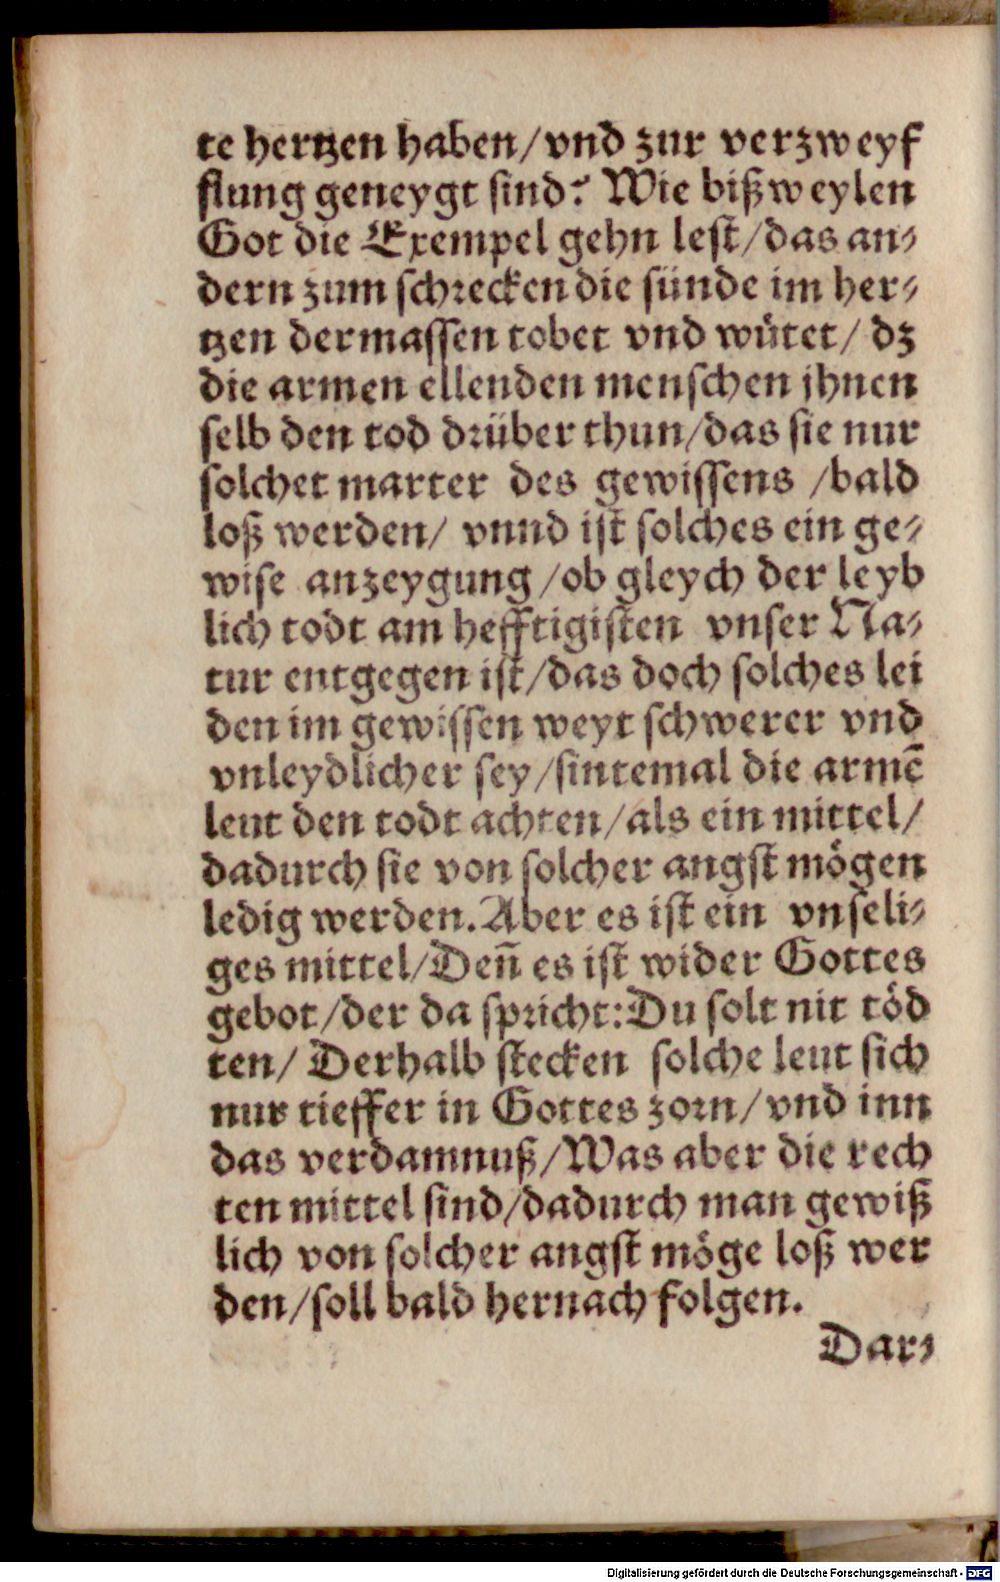 te hertzen haben/vnd zur verzweyf
flung geneygt sind? Wie bißweylen
Got die Exempel gehn lest/das an⸗
dern zum schrecken die sünde im her⸗
tzen dermassen tobet vnd wütet/ dz
die armen ellenden menschen jhnen
selb den tod drüber thun/das sie nur
solcher marter des gewissens /bald
loß werden/ vnnd ist solches ein ge⸗
wise anzeygung /ob gleych der leyb
lich todt am hefftigisten vnser Na⸗
tur entgegen ist/das doch solches lei
den im gewissen weyt schwerer vnd
vnleydlicher sey/sintemal die armē
leut den todt achten/als ein mittel/
dadurch sie von solcher angst mögen
ledig werden. Aber es ist ein vnseli⸗
ges mittel/Deñ es ist wider Gottes
gebot/der da spricht: Du solt nit töd
ten/ Derhalb stecken solche leut sich
nur tieffer in Gottes zorn/vnd inn
das verdamnuß/Was aber die rech
ten mittel sind/dadurch man gewiß
lich von solcher angst möge loß wer
den/soll bald hernach folgen.
Dar⸗
Digitalisierung gefördert durch die Deutsche Forschungsgemeinschaft - DFG